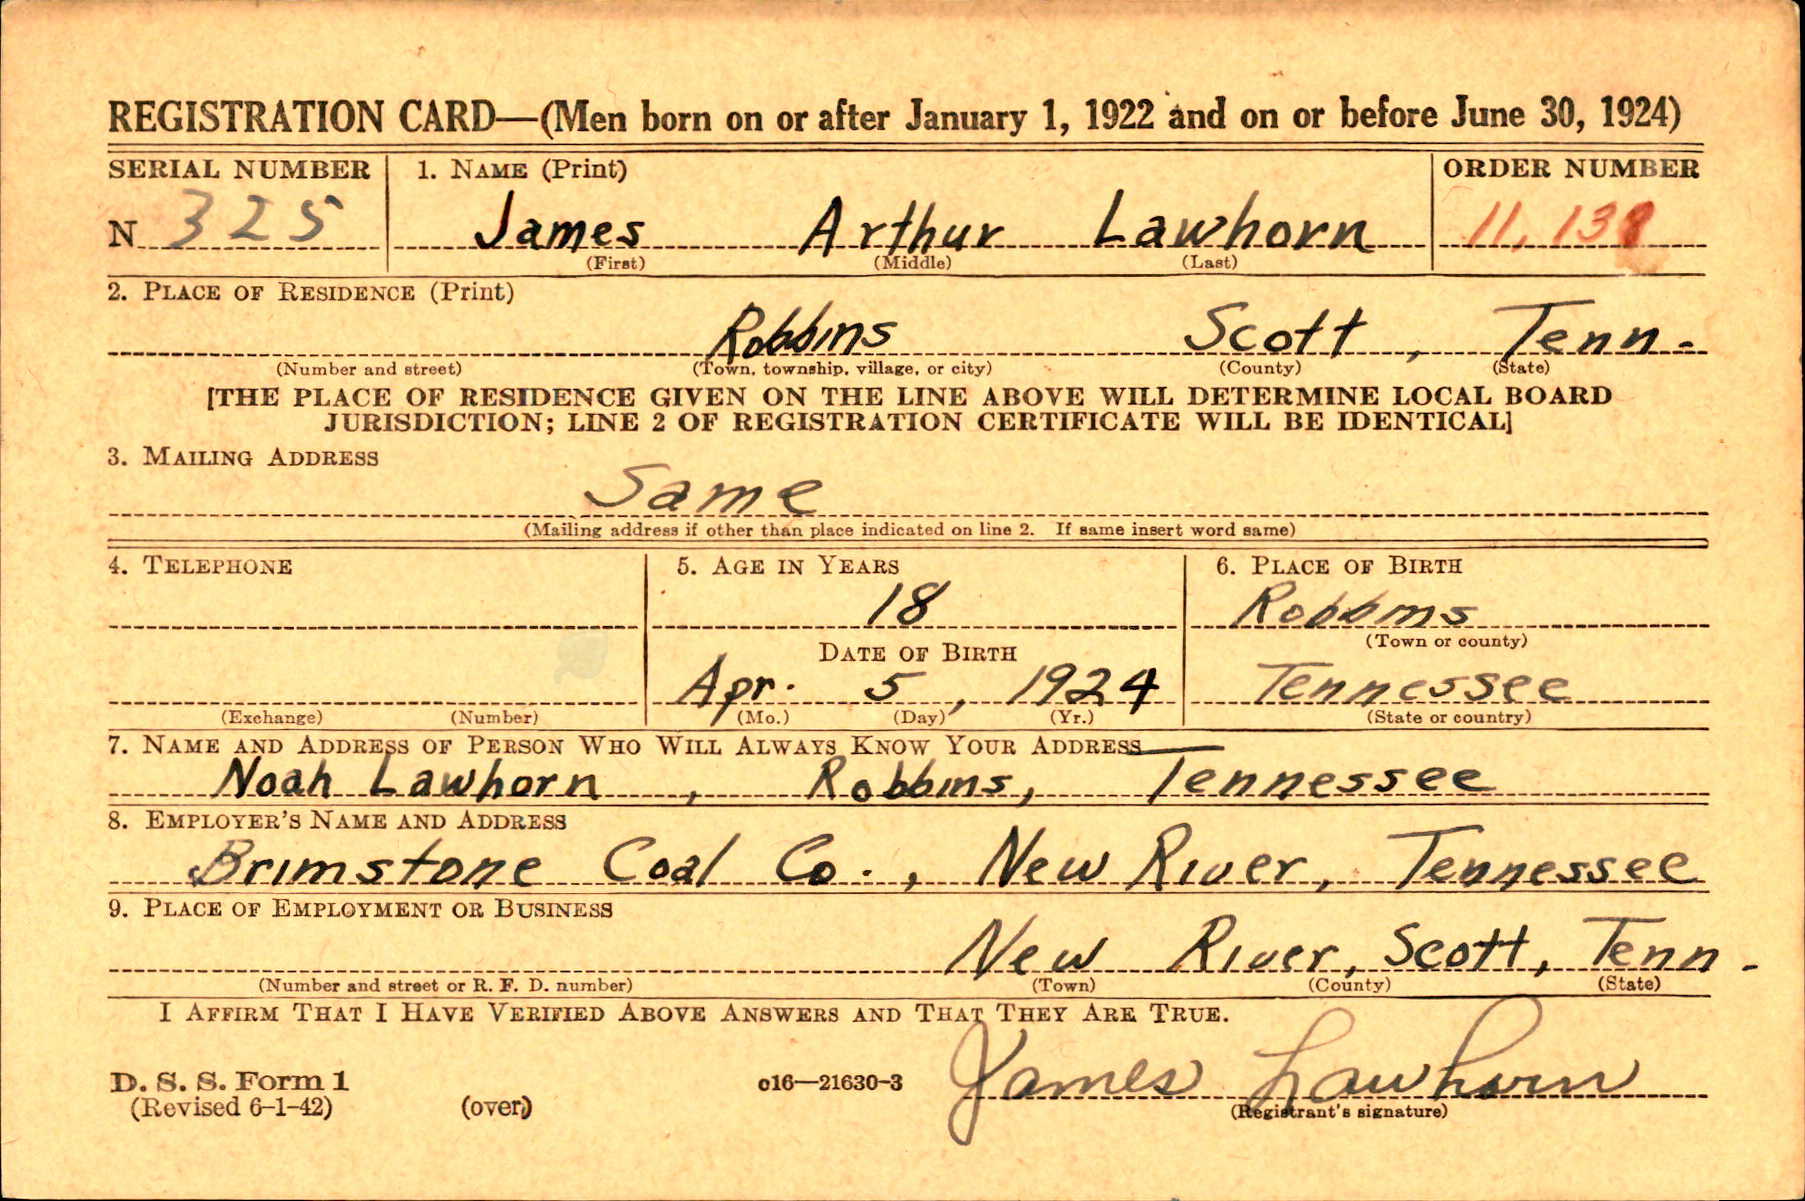 REGISTRATION CARD—(Men born on or after January 1, 1922 and on or before June 30, 1924)
SERIAL NUMBER 1. NAME (Print) ORDER NUMBER
N 325 James Arthur Lawhorn 11,138
(First) (Middle) (Last)
2. PLACE OF RESIDENCE (Print)
Robbins Scott, Tenn.
(Number and street) (Town, township, village, or city) (County) (State)
[THE PLACE OF RESIDENCE GIVEN ON THE LINE ABOVE WILL DETERMINE LOCAL BOARD
JURISDICTION; LINE 2 OF REGISTRATION CERTIFICATE WILL BE IDENTICAL]
3. MAILING ADDRESS
Same
(Mailing address if other than place indicated on line 2. If same insert word same)
4. TELEPHONE 5. AGE IN YEARS 6. PLACE OF BIRTH
18 Robbins
DATE OF BIRTH (Town or county)
Apr. 5, 1924 Tennessee
(Exchange) (Number) (Mo.) (Day) (Yr.) (State or country)
7. NAME AND ADDRESS OF PERSON WHO WILL ALWAYS KNOW YOUR ADDRESS
Noah Lawhorn, Robbins, Tennessee
8. EMPLOYER'S NAME AND ADDRESS
Brimstone Coal Co., New River, Tennessee
9. PLACE OF EMPLOYMENT OR BUSINESS
New River, Scott, Tenn.
(Number and street or R. F. D. number) (Town) (County) (State)
I AFFIRM THAT I HAVE VERIFIED ABOVE ANSWERS AND THAT THEY ARE TRUE.
James Lawhorn
D. S. S. Form 1 c16—21630-3
(Revised 6-1-42) (over) (Registrant's signature)